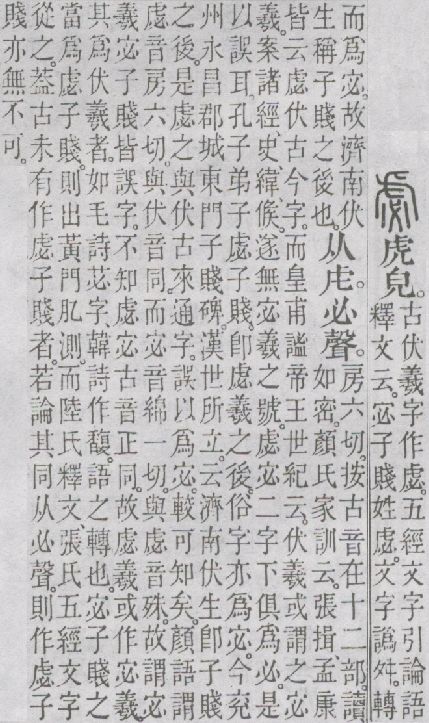 虙
虎皃。
古伏羲字作虙。五經文字引論語
釋文云。宓子賤姓虙。文字譌舛。轉
而爲宓。故濟南伏
生稱子賤之後也。
从虍。必聲。
房六切。按古音在十二部。讀
如密。顏氏家訓云。張揖孟康
皆云虙伏古今字。而皇甫謐帝王世紀云。伏羲或謂之宓
羲。案諸經史緯候。遂無宓羲之號。虙宓二字下俱爲必。是
以誤耳。孔子弟子虙子賤。卽虙羲之後。俗字亦爲宓。今兖
州永昌郡城東門子賤碑。漢世所立。云濟南伏生卽子賤
之後。是虙之與伏古來通字。誤以爲宓。較可知矣。顏語謂
虙音房六切。與伏音同。而宓音綿一切。與虙音殊。故謂宓
羲宓子賤皆誤字。不知虙宓古音正同。故虙羲或作宓羲。
其爲伏羲者。如毛詩苾字。韓詩作馥。語之轉也。宓子賤之
當爲虙子賤。則出黃門肊測。而陸氏釋文、張氏五經文字
從之。葢古未有作虙子賤者。若論其同从必聲。則作虙子
賤亦無不可。